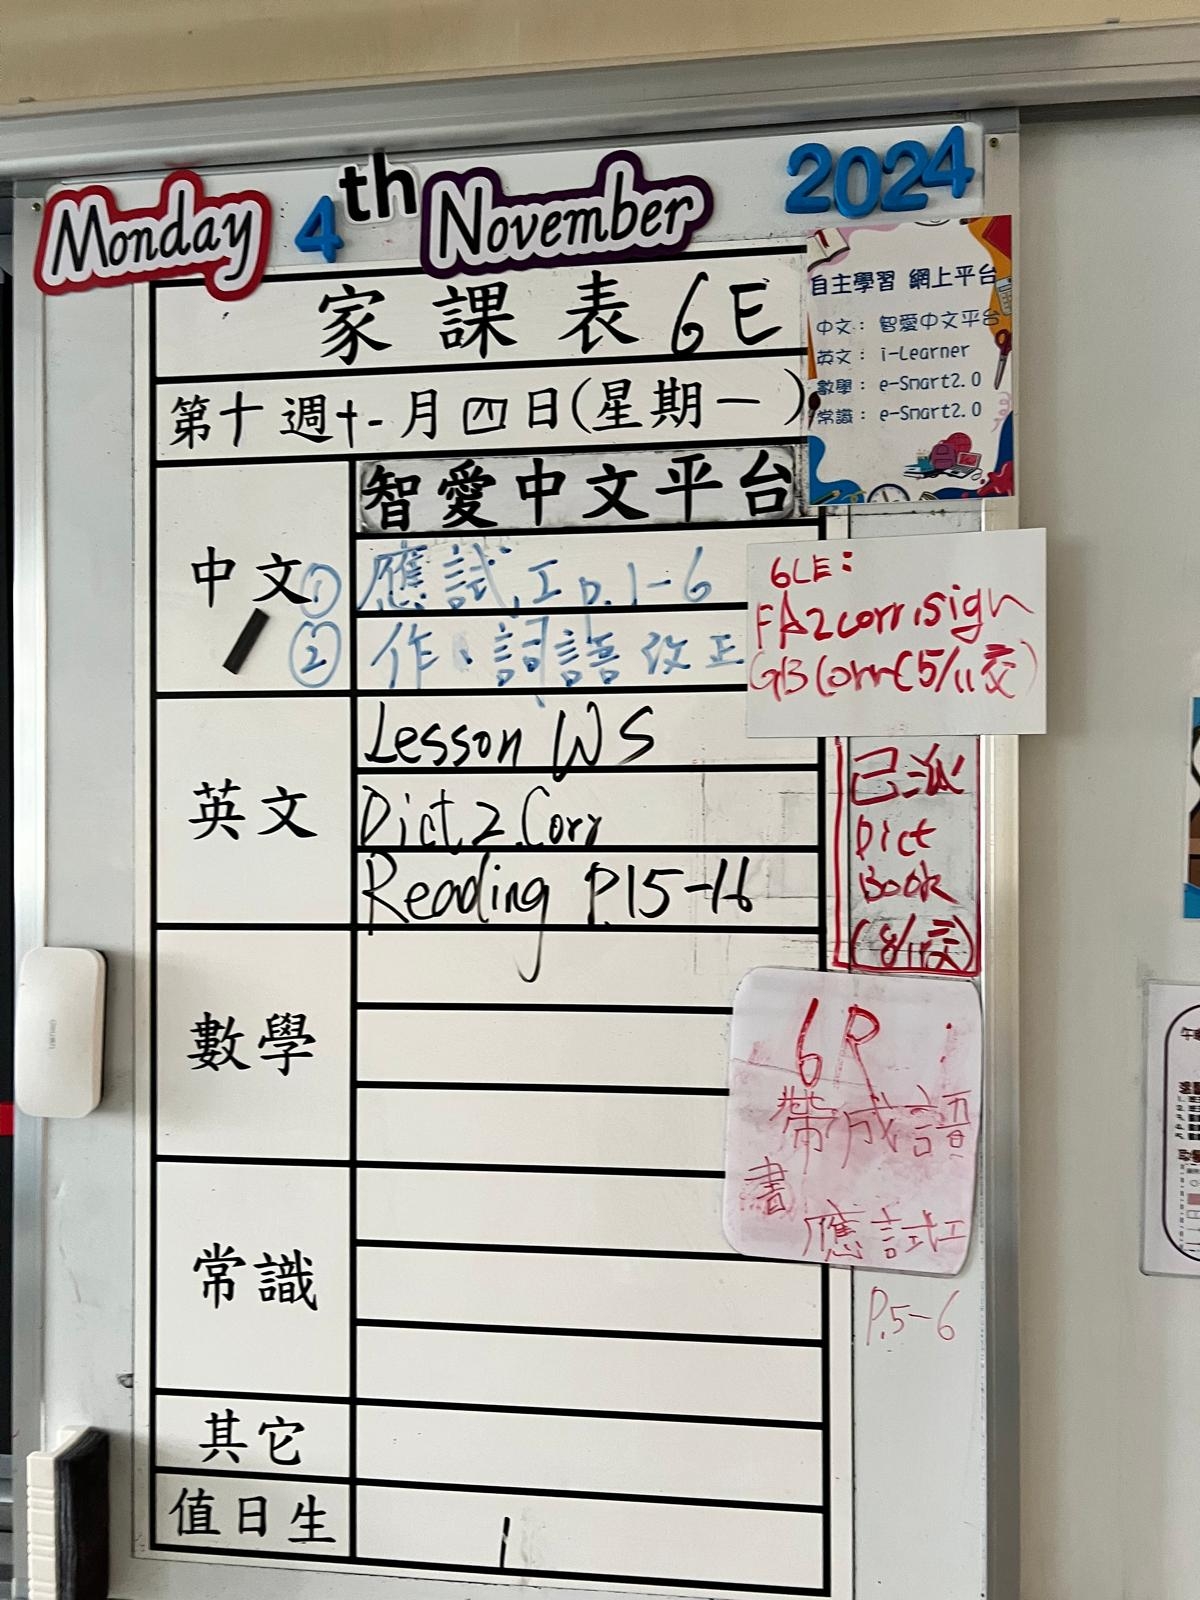 Monday 4th November 2024
家課表 6E
第十週十一月四日(星期一)
自主學習 網上平台
中文：智愛中文平台
英文：i-Learner
數學：e-Smart2.0
常識：e-Smart2.0
中文
智愛中文平台
① 應試工 p.1-6
② 作、詞語改正
6LE:
FA2corr,sign
GB Corr(5/11交)
英文
Lesson WS
Dict 2 Corr
Reading P.15-16
已派
Dict
Book
(8/11交)
數學
6R:
帶成語
書
應試工
P.5-6
常識
其它
值日生
1